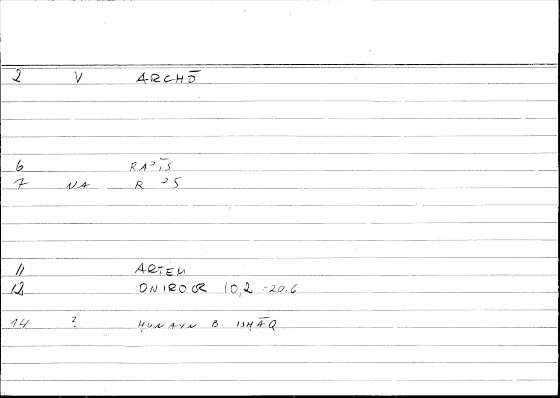 2 V ARCHŌ
6 RAʾĪS
7 NA R ʾS
11 ARTEM
12 ONIROCR 10,2-20.6
14 ? ḤUNAYN B. ISḤĀQ